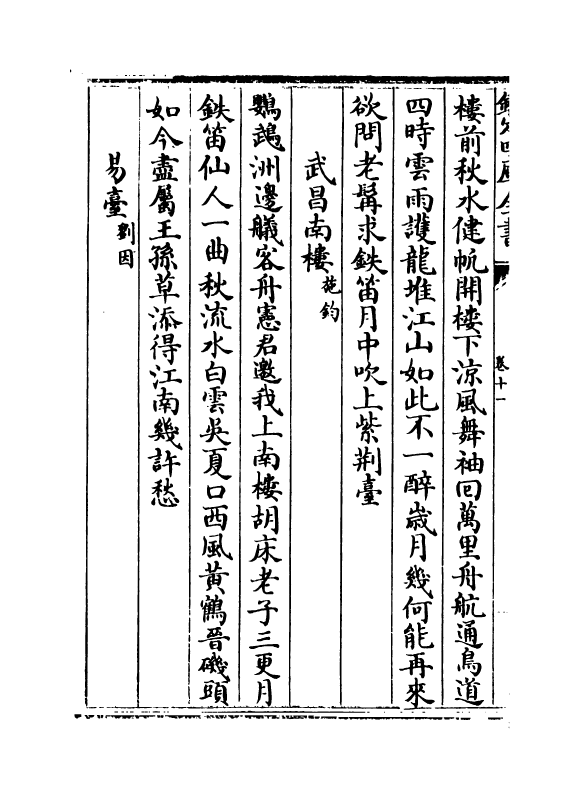 欽定四庫全書
卷十一
樓前秋水健帆開樓下涼風舞袖回萬里舟航通鳥道
四時雲雨護龍堆江山如此不一醉歲月幾何能再來
欲問老髯求鉄笛月中吹上紫荆臺
武昌南樓施鈞
鸚鵡洲邊艤客舟憲君邀我上南樓胡床老子三更月
鉄笛仙人一曲秋流水白雲吳夏口西風黃鶴晉磯頭
如今盡屬王孫草添得江南幾許愁
易臺劉因